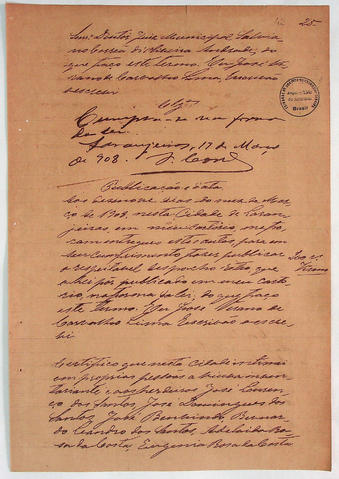 25.
Snr. Doutor Juiz Municipal
no Correa de Oliveira Andrade, do
que faço este termo. Eu José
de Carvalho Lima, Escrivão
escrevi
Clzos
Cumpra-se na forma
da lei.
Laranjeiras, 17 de Março
de 908.
Publicação e data
Aos dezenove dias do mez de Mar
ço de 1908, nesta Cidade de Laran
jeiras, em meu cartorio, me fo
ram entregues estes autos, para em
seu cumprimento fazer publicar
o respeitavel despacho retro, que
a hei por publicado em meu carto
rio, na forma da lei, do que faço
este termo. Eu José
de Carvalho Lima Escrivão escre
vi
Certifico que nesta cidade intimei
em proprias pessôas a inventa
riante e aos herdeiros José Louren
ço dos Santos, José Domingues dos
Santos, José Bemvindo, Bernar
do Leandro dos Santos, Adelaide Ro
sa da Costa, Eugenia Rosa da Costa
Brasil